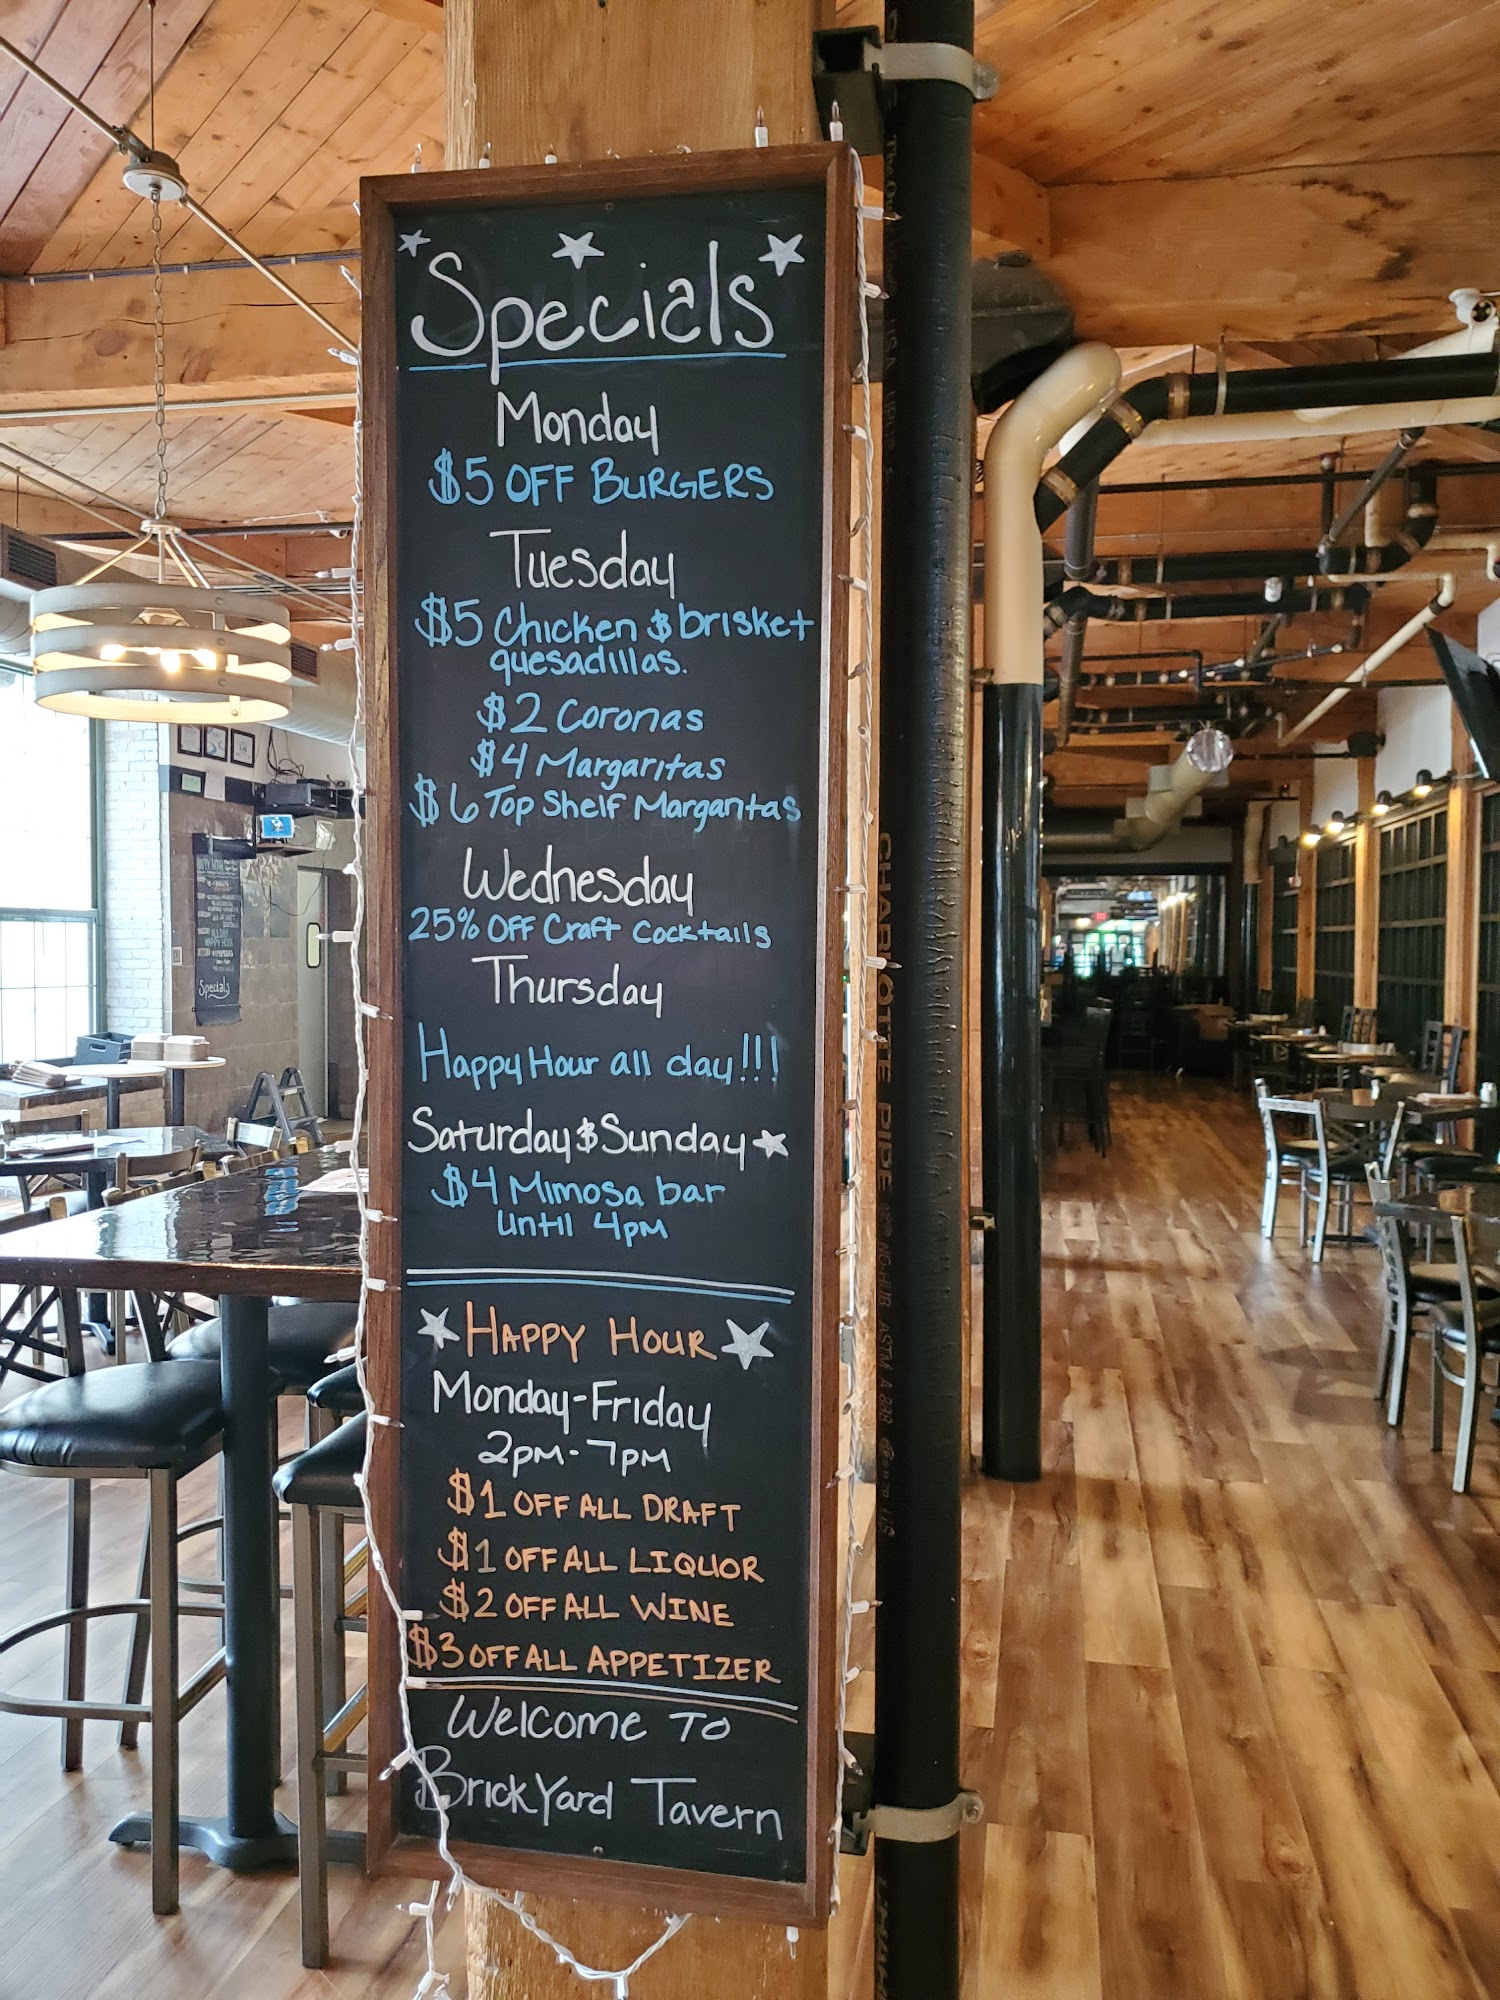 Specials
Monday
$5 OFF BURGERS
Tuesday
$5 Chicken & brisket
quesadillas.
$2 Coronas
$4 Margaritas
$6 Top Shelf Margaritas
Wednesday
25% OFF Craft Cocktails
Thursday
Happy Hour all day!!!
Saturday & Sunday
$4 Mimosa bar
until 4pm
HAPPY HOUR
Monday-Friday
2pm-7pm
$1 OFF ALL DRAFT
$1 OFF ALL LIQUOR
$2 OFF ALL WINE
$3 OFF ALL APPETIZER
Welcome To
BrickYard Tavern
CHARLOTTE PIPE
NO-HUB ASTM A 888
Specials